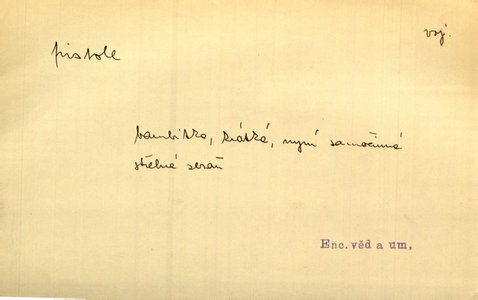 voj.
pistole
bambitka, krátká, nyní samočinná
střelná zbraň
Enc. věd a um.